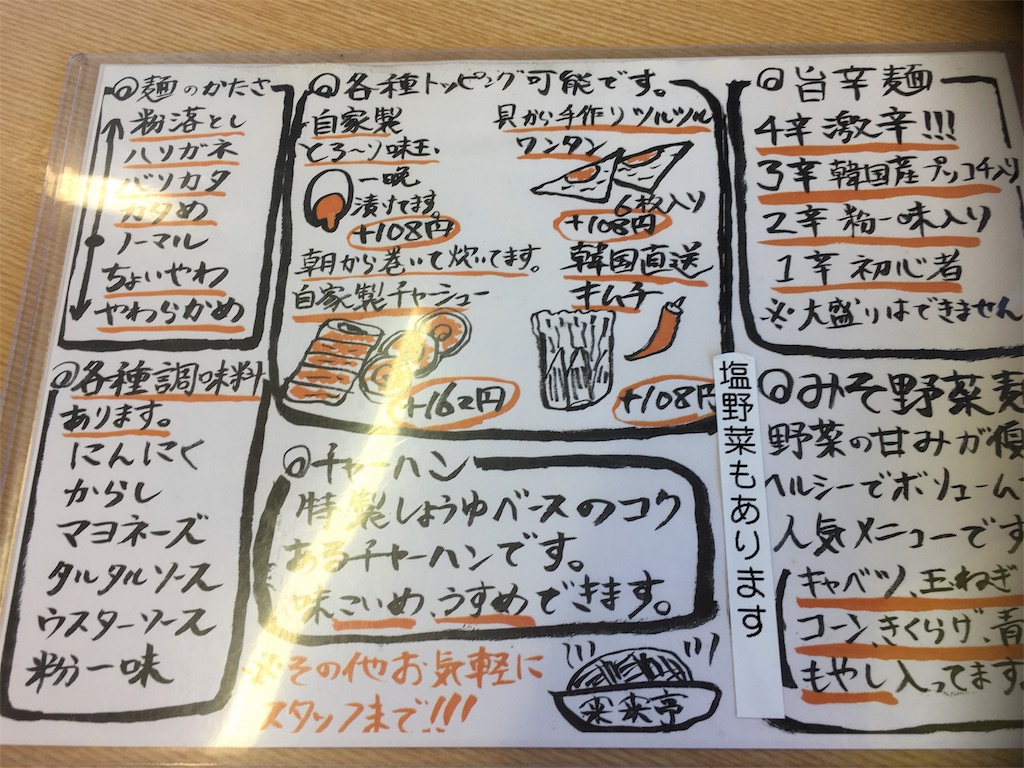 ◎麺のかたさ
粉落とし
ハリガネ
バリカタ
カタめ
ノーマル
ちょいやわ
やわらかめ
◎各種調味料
あります。
にんにく
からし
マヨネーズ
タルタルソース
ウスターソース
粉一味
◎各種トッピング可能です。
自家製
とろ〜り味玉
一晩
漬けてます。
+108円
具から手作りツルツル
ワンタン
6枚入り
+108円
朝から巻いて炊いてます。
自家製チャーシュー
+162円
韓国直送
キムチ
+108円
◎チャーハン
特製しょうゆベースのコク
あるチャーハンです。
味こいめ、うすめできます。
※その他お気軽に
スタッフまで!!!
来来亭
◎旨辛麺
4辛 激辛!!!
3辛 韓国産プッコチ入り
2辛 粉一味入り
1辛 初心者
※大盛りはできません
塩野菜もあります
◎みそ野菜
野菜の甘みが
ヘルシーでボリューム
人気メニューです
キャベツ、玉ねぎ
コーン、きくらげ、青
もやし入ってます。